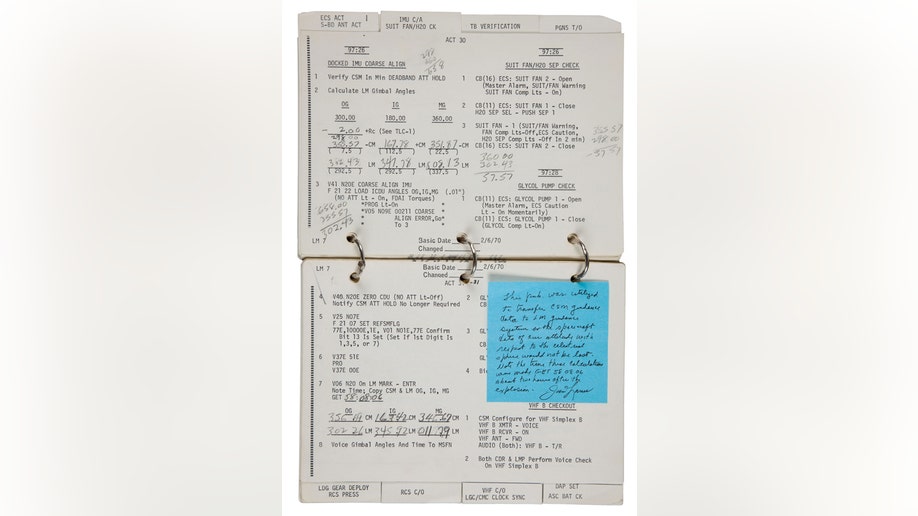 ECS ACT
S-BD ANT ACT
IMU C/A
SUIT FAN/H2O CK
TB VERIFICATION
PGNS T/O
ACT 30
97:26
DOCKED IMU COARSE ALIGN
1 Verify CSM In Min DEADBAND ATT HOLD
2 Calculate LM Gimbal Angles
OG IG MG
300.00 180.00 360.00
- 2.00 +Rc (See TLC-1)
298.00
355.57 -CM 167.78 +CM 351.87 -CM
(7.5) (112.5) (22.5)
302.43 LM 347.78 LM 08.13 LM
(292.5) (292.5) (337.5)
3 V41 N20E COARSE ALIGN IMU
F 21 22 LOAD ICDU ANGLES OG,IG,MG (.01°)
(NO ATT Lt - On, FDAI Torques)
*PROG Lt-On *
*V05 N09E 00211 COARSE *
* ALIGN ERROR,Go*
* To 3 *
355.57
302.43
LM 7
Basic Date 2/6/70
Changed
97:26
SUIT FAN/H2O SEP CHECK
1 CB(16) ECS: SUIT FAN 2 - Open
(Master Alarm, Suit/FAN Warning
SUIT FAN Comp Lts - On)
2 CB(11) ECS: SUIT FAN 1 - Close
H2O SEP SEL - PUSH SEP 1
3 SUIT FAN - 1 (SUIT/FAN Warning,
FAN Comp Lts-Off,ECS Caution,
H2O SEP Comp Lts-Off In 2 min)
CB(16) ECS: SUIT FAN 2 - Close
355.57
298.00
57.57
360.00
302.43
57.57
97:28
GLYCOL PUMP CHECK
1 CB(11) ECS: GLYCOL PUMP 1 - Open
(Master Alarm, ECS Caution
Lt - On Momentarily)
CB(11) ECS: GLYCOL PUMP 1 - Close
(GLYCOL Comp Lt-On)
LM 7
Basic Date 2/6/70
Changed
ACT 31
4 V40 N20E ZERO CDU (NO ATT Lt-Off)
Notify CSM ATT HOLD No Longer Required
5 V25 N07E
F 21 07 SET REFSMFLG
77E,10000E,1E, V01 N01E,77E Confirm
Bit 13 Is Set (Set If 1st Digit Is
1,3,5, or 7)
6 V37E 51E
PRO
V37E 00E
7 V06 N20 On LM MARK - ENTR
Note Time; Copy CSM & LM OG, IG, MG
GET 58:08:06
OG IG MG
CM CM CM
302 26 LM 345 92 LM 011 79 LM
8 Voice Gimbal Angles And Time To MSFN
2
CB
3
4
This was utilized
to transfer CSM guidance
data to LM guidance
system so the spacecraft
data of our attitude with
respect to the celestial
sphere would not be lost.
Note the time these calculations
were made GET 58 08 06
about two hours after the
explosion.
VHF B CHECKOUT
1 CSM Configure for VHF Simplex B
VHF B XMTR - VOICE
VHF B RCVR - ON
VHF ANT - FWD
AUDIO (Both): VHF B - T/R
2 Both CDR & LMP Perform Voice Check
On VHF Simplex B
LDG GEAR DEPLOY
RCS PRESS
RCS C/O
VHF C/O
LGC/CMC CLOCK SYNC
DAP SET
ASC BAT CK